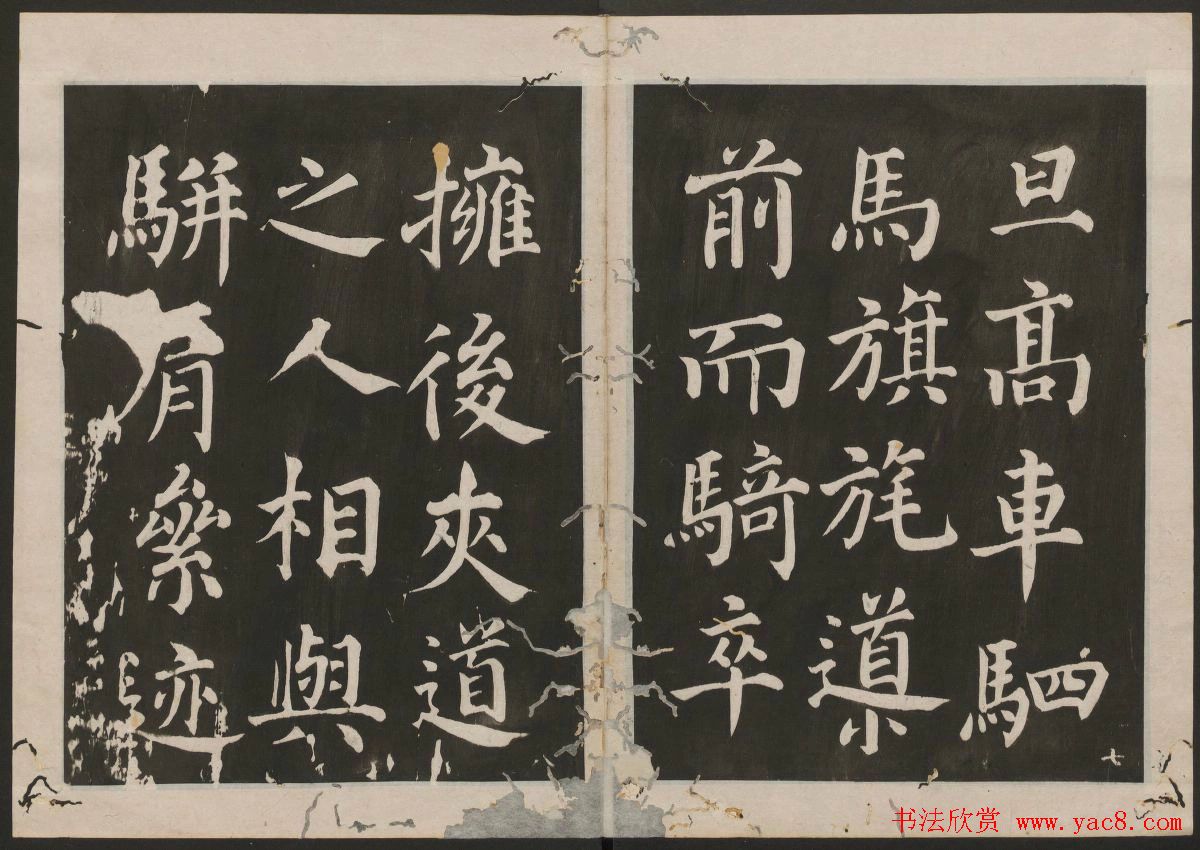 旦髙車駟
馬旗旄導
前而騎卒
七
擁後夾道
之人相與
駢肩絫迹
书法欣赏 www.yac8.com